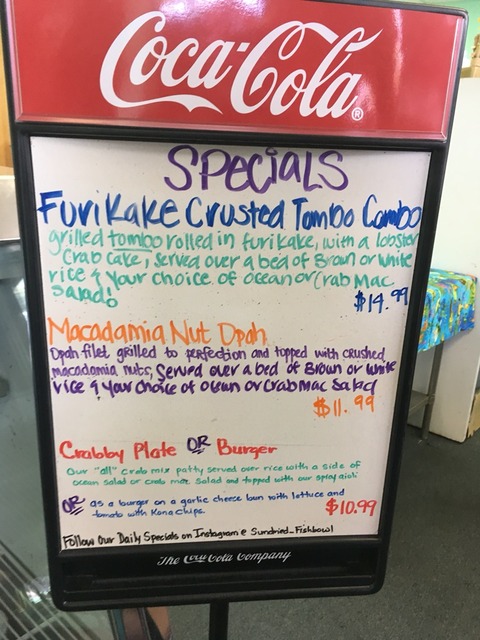 Coca-Cola®
SPECIALS
Furikake Crusted Tombo Combo
grilled tombo rolled in furikake, with a lobster
Crab cake, served over a bed of Brown or white
rice & your choice of ocean or Crab Mac
Salad!
$14.99
Macadamia Nut Opah
Opah filet grilled to perfection and topped with crushed
macadamia nuts, Served over a bed of Brown or white
rice & your choice of ocean or Crab Mac Salad
$11.99
Crabby Plate OR Burger
Our "all" crab mix patty served over rice with a side of
ocean salad or crab mac salad and topped with our spicy aioli
OR as a burger on a garlic cheese bun with lettuce and
tomato with Kona chips.
$10.99
Follow Our Daily Specials on Instagram @ Sundried_Fishbowl
The Coca-Cola Company